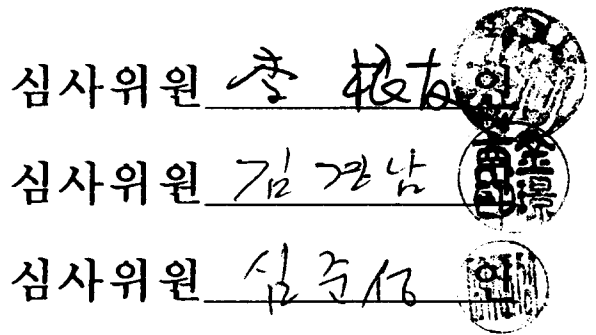 심사위원 李 根友 인
심사위원 김경남
심사위원 심준섭 인